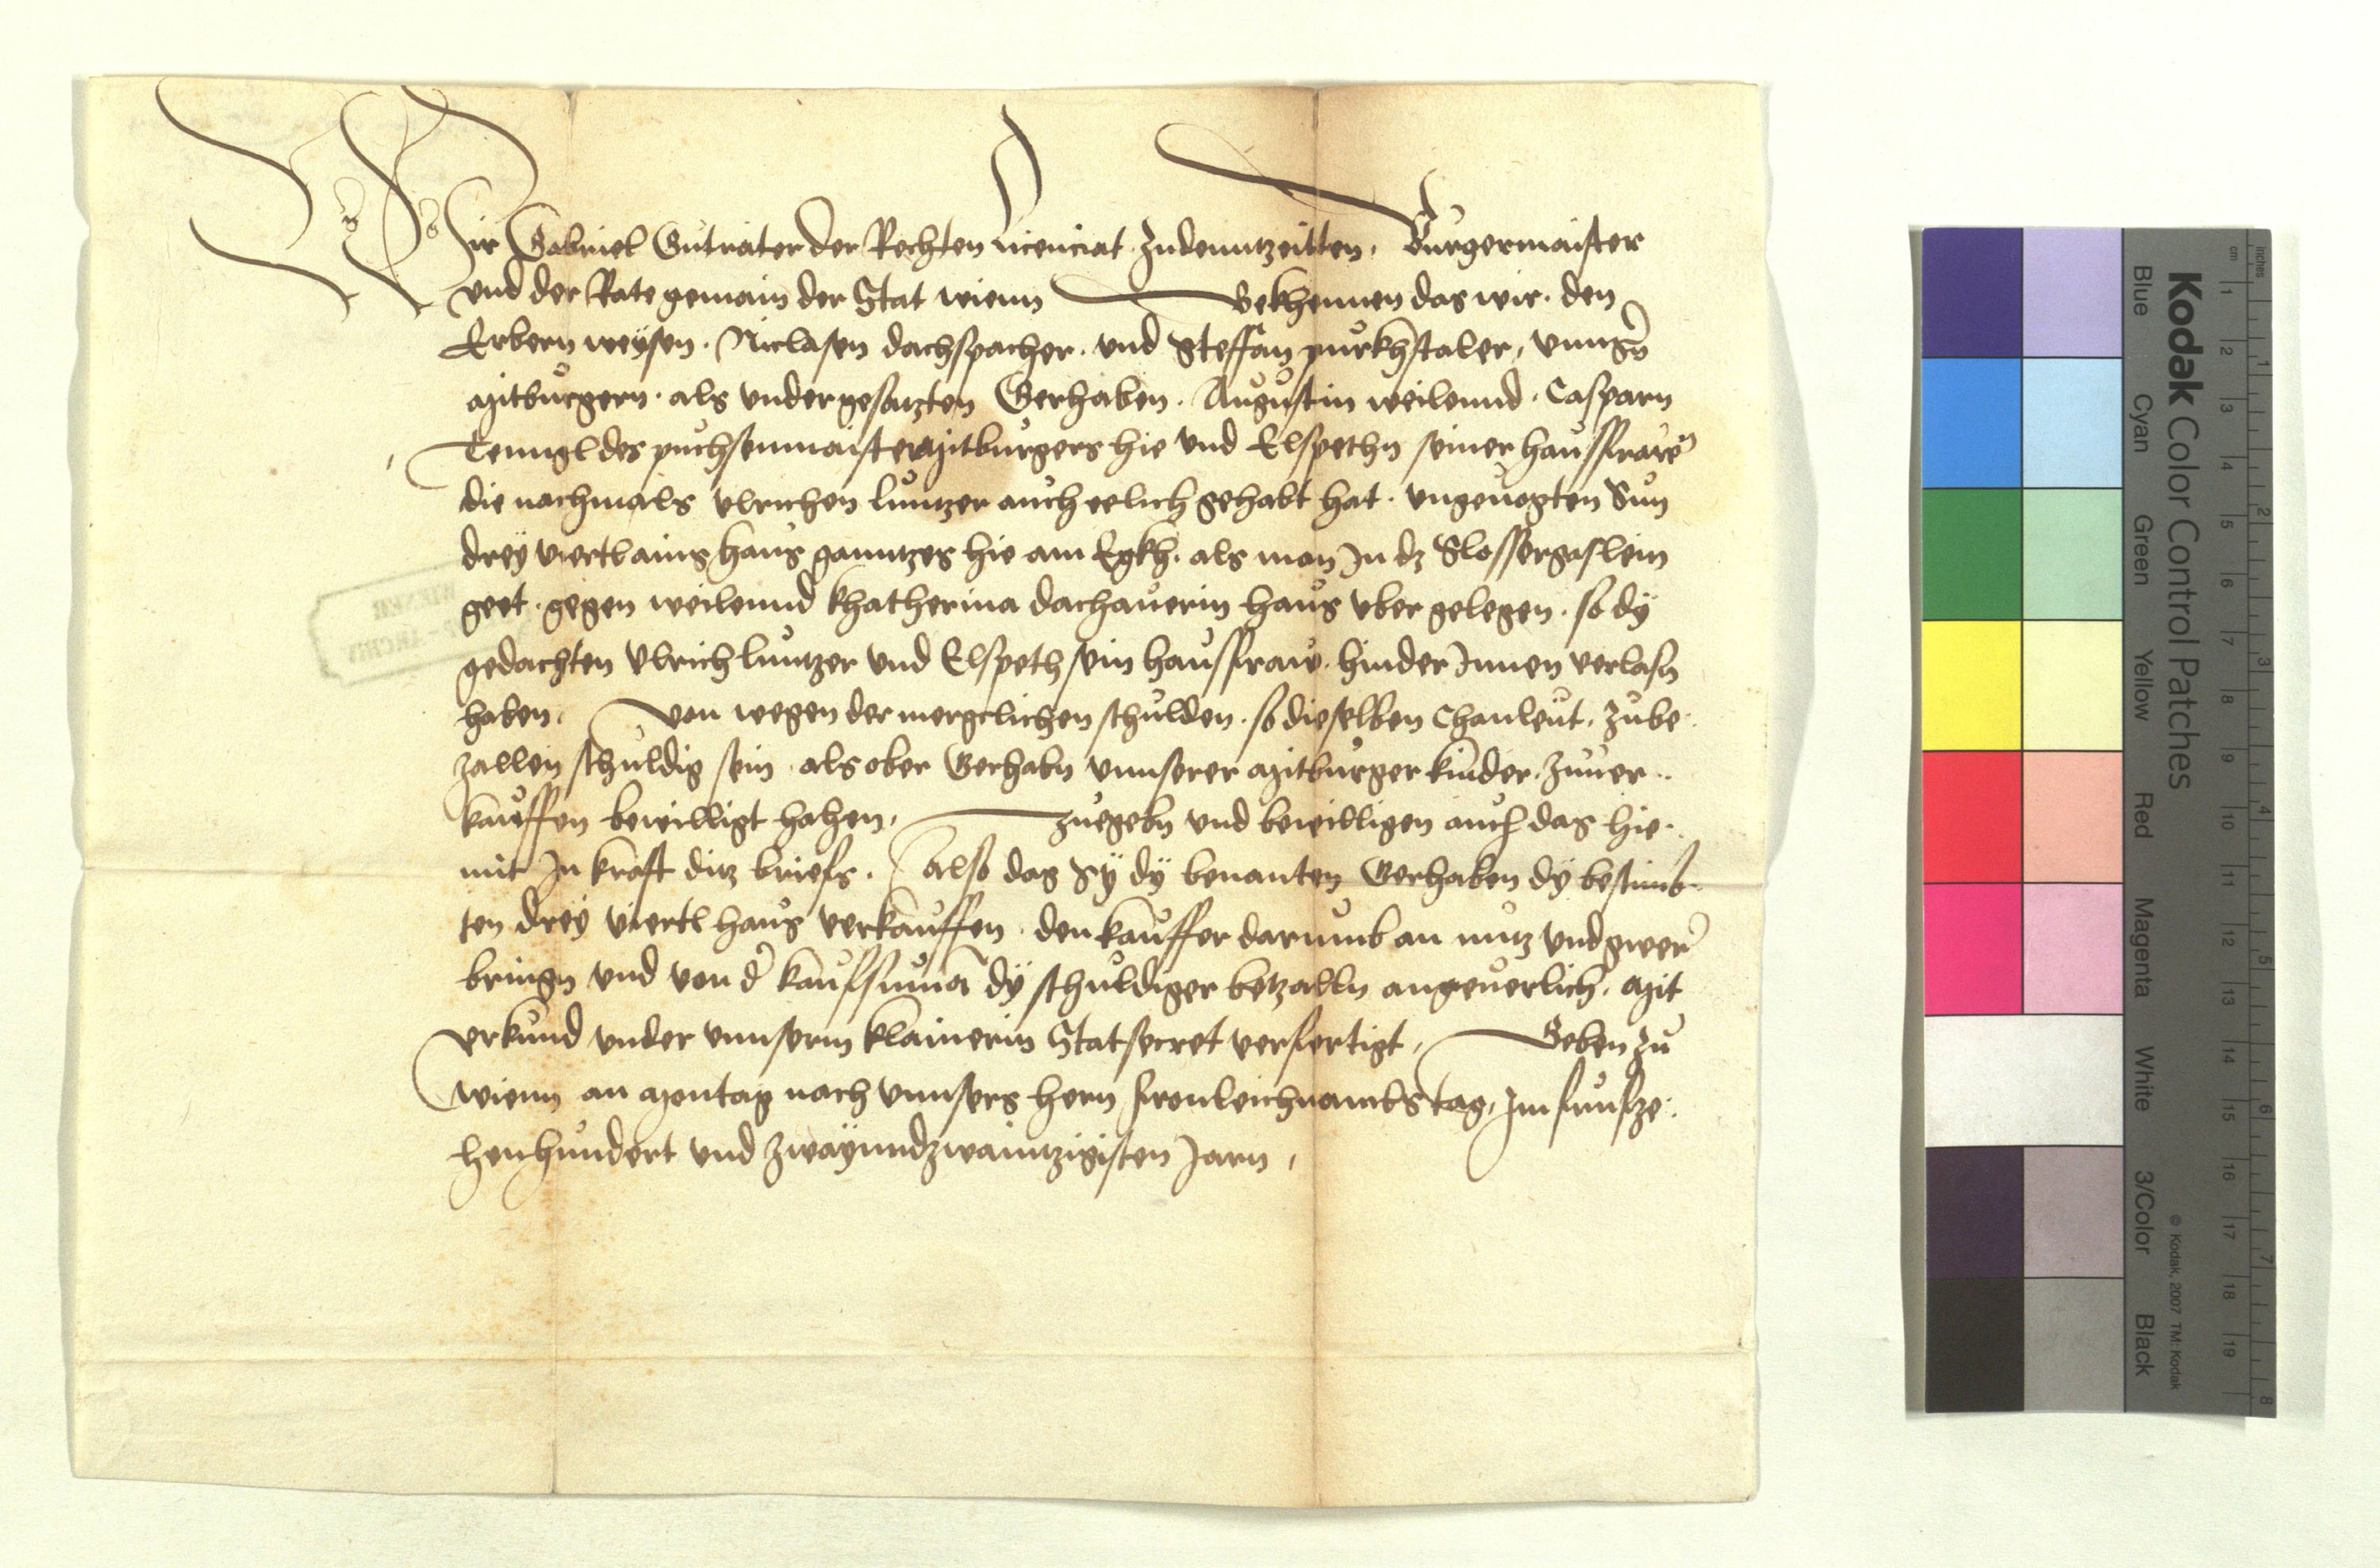 Wir Gabriel Gutrater der Rechten licenciat Zu denntzeitten. Burgermaister
und der Rate gemain der Stat wienn Bekhennen das wir. den
Erbern weÿsen. Niclasen dachspacher. und Steffan purkhstaler, unnsern
Mitburgern. als undergesatzten Gerhaben. Augustin weilennd. Casparn
Tenngl des puchsenmaister Mitburgers hie und Elspethn seiner hausfrawen
die nachmals Ulrichen luntzer auch eelich gehabt hat. ungeuogten Sun
dreÿ viertl ains haus ganntzes hie am Egkh. als man In dz Slossergaslein
geet. gegen weilennd khatherina dachauerin haus uber gelegen. so dÿ
gedachten Ulrich luntzer und Elspeth sein hausfraw. hinder Innen verlasn
haben. von wegen der mergclichen schulden. so dieselben Chanleut. zube-
zallen schuldig sein. als ober Gerhabn unnserer Mitburger kinder. zuuer-
kauffen bewilligt haben, zuegebn und bewilligen auch das hie-
mit In kraft ditz briefs. Also das Sÿ dÿ benanten Gerhaben dÿ bestimb-
ten dreÿ viertl haus verkauffen. den kauffer darumb an nutz und gwer
bringn und von der kaufsuma dÿ schuldiger betzalln angeuerlich. Mit
urkund under unnserm klainerm Statsecret verfertigt, Geben zu
wienn an Montag nach unnsers hern fronleichnambstag, Im funfze-
henhundert und zwaÿundzwaintzigisten Jarn,
WIENER
Kodak Color Control Patches
Blue Cyan Green Yellow Red Magenta White 3/Color Black
© Kodak, 2007 TM: Kodak
cm 1 2 3 4 5 6 7 8 9 10 11 12 13 14 15 16 17 18 19
inches 1 2 3 4 5 6 7 8